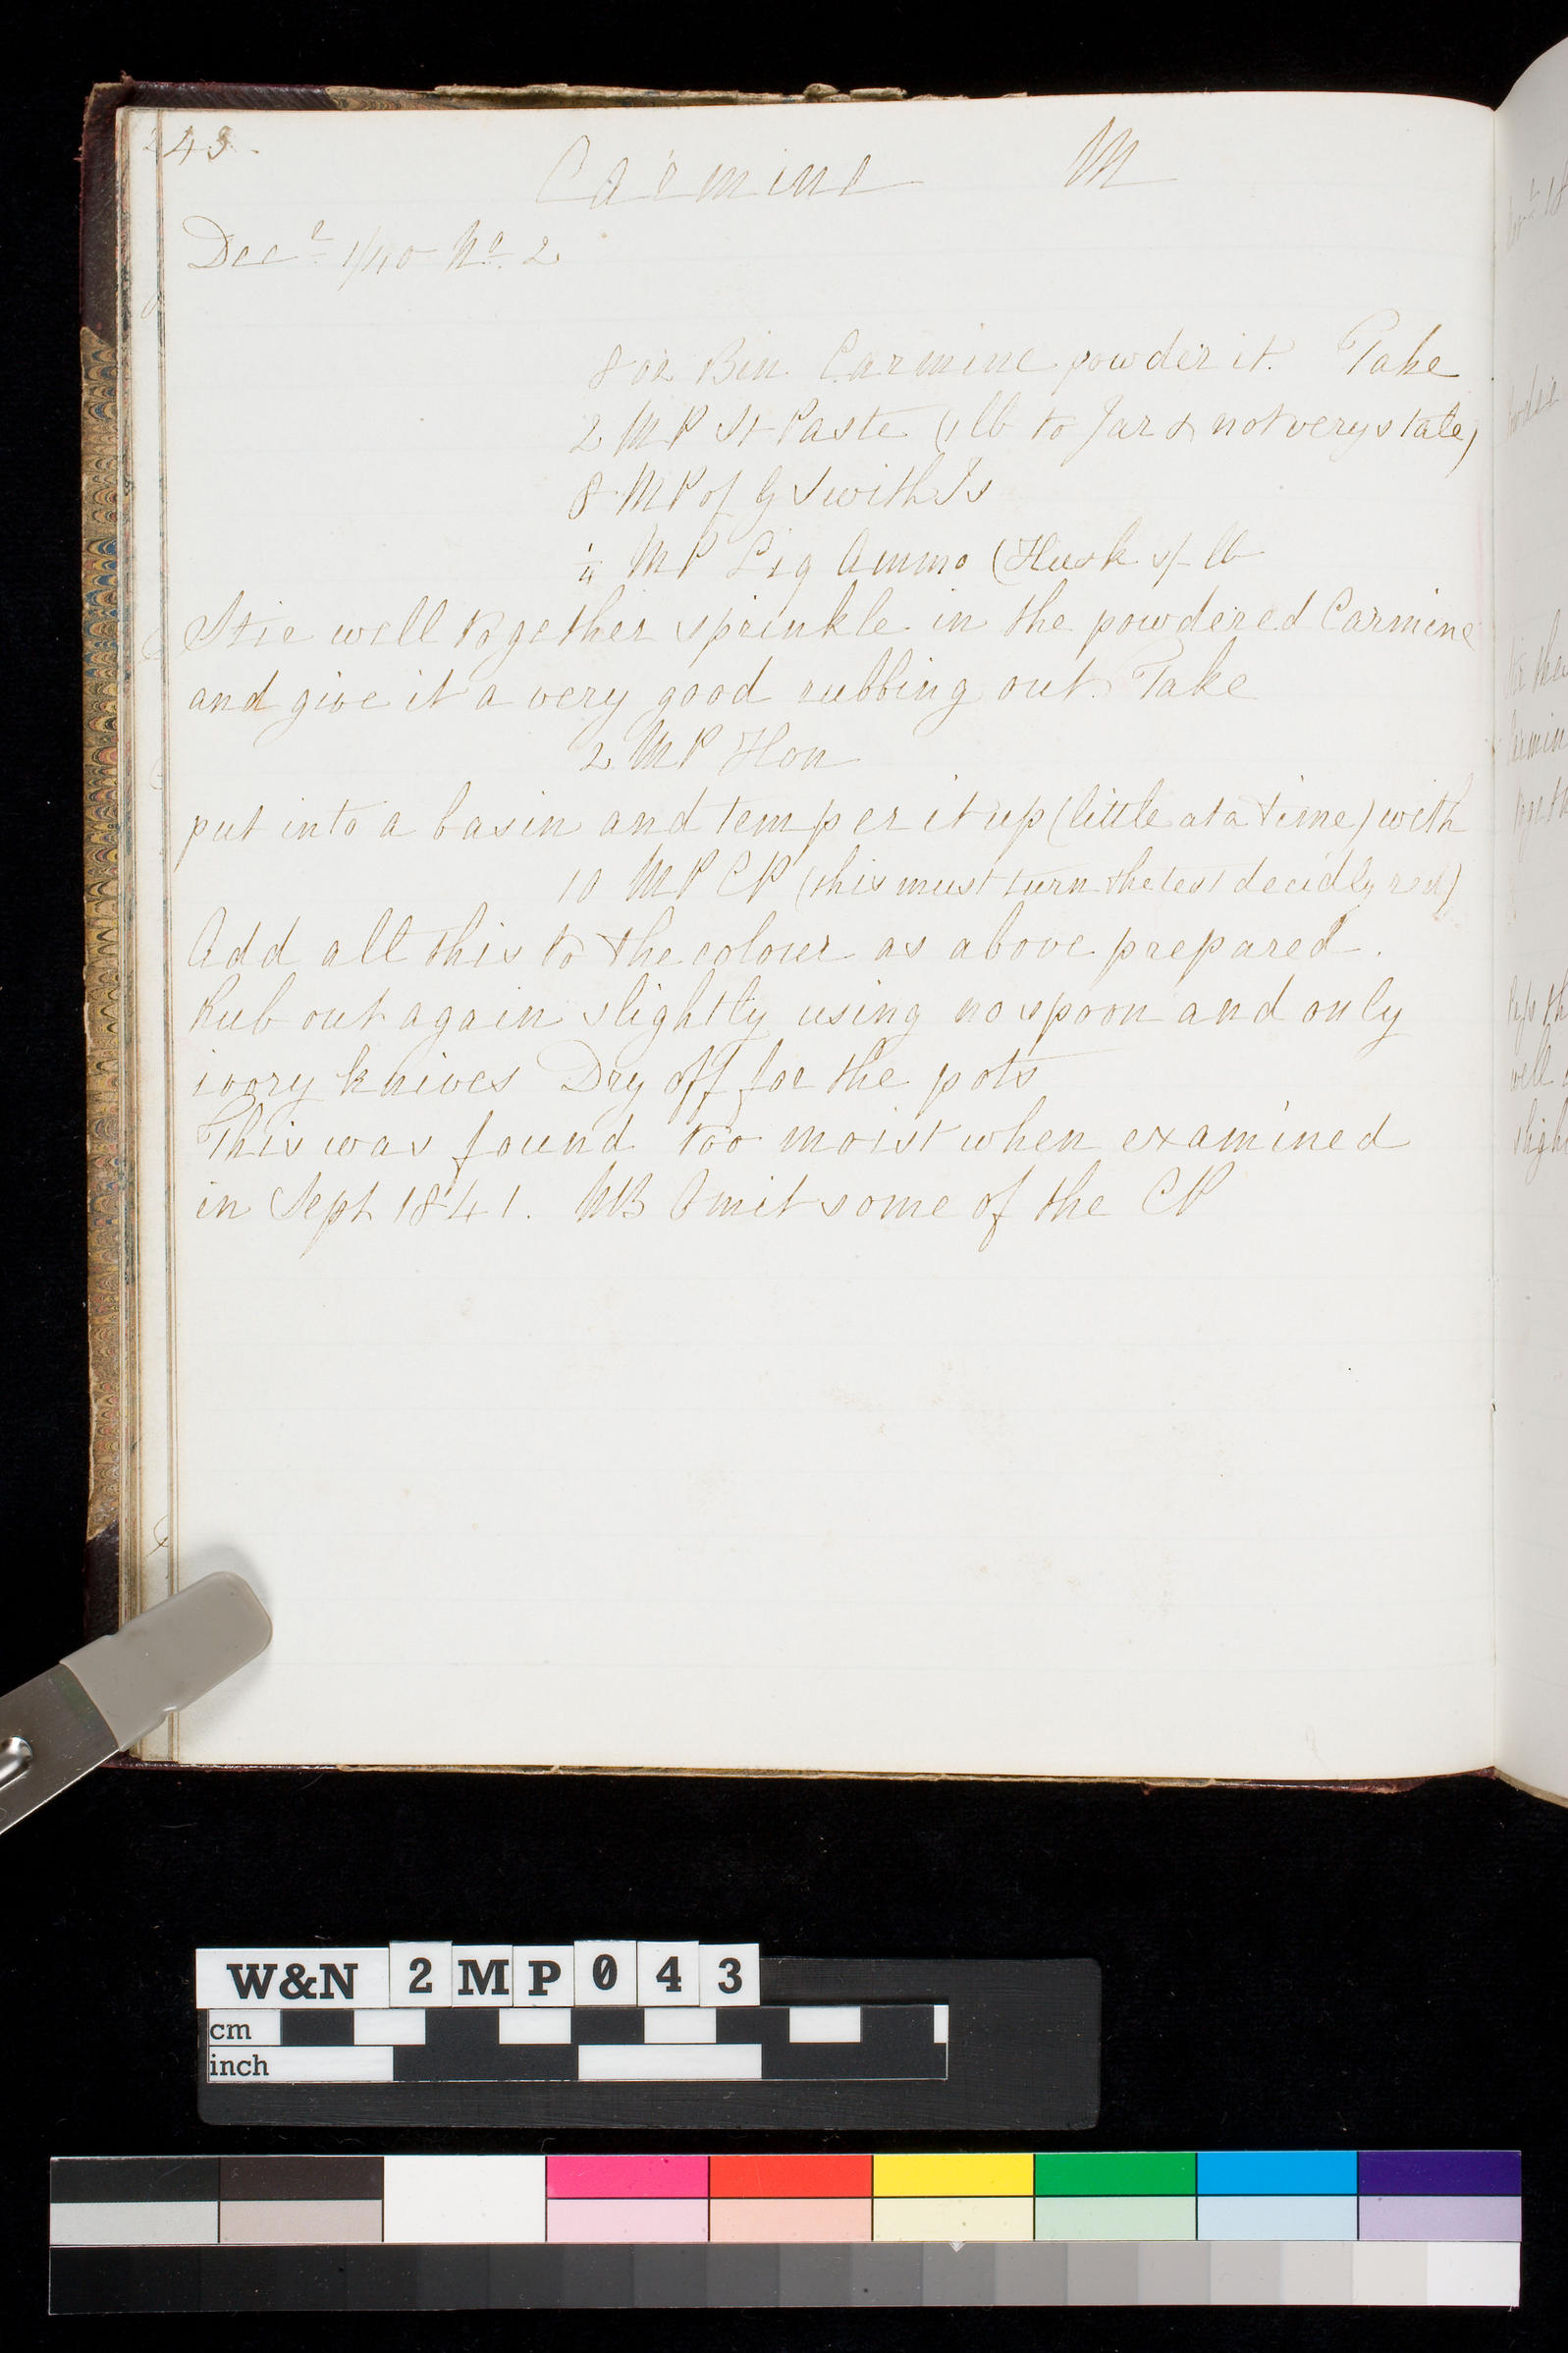 43.
Carmine M
Decr 1/40 No. 2
8 oz Bin Carmine powder it. Take
2 MP St Paste (1 lb to Jar & not very stale)
8 MP of G S with Is
1/4 MP Liq Ammo (Husk s/- lb
Stir well together sprinkle in the powdered Carmine
and give it a very good rubbing out. Take
2 MP Hon
put into a basin and temper it up (little at a time) with
10 MP CP (this must turn the test decidly red)
Add all this to the colour as above prepared.
Rub out again slightly using no spoon and only
ivory knives Dry off for the pots
This was found too moist when examined
in Sept 1841. NB Omit some of the CP
W&N 2MP043
cm
inch